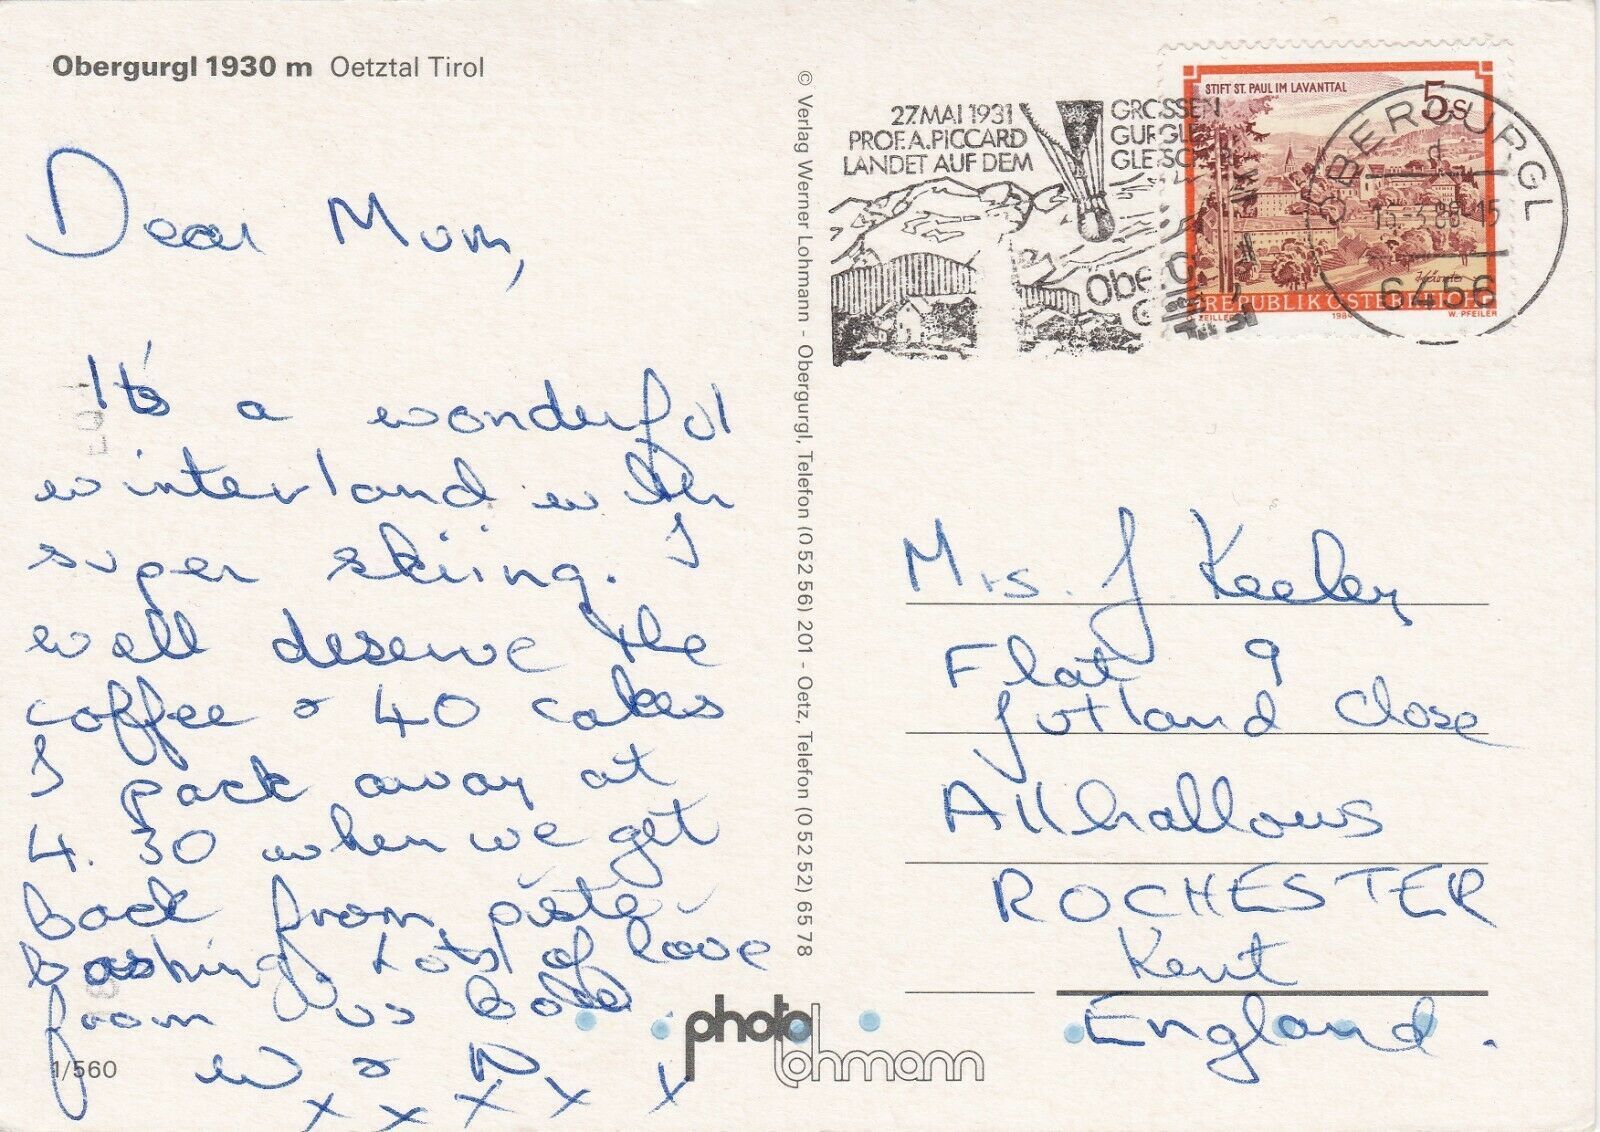 Obergurgl 1930 m Oetztal Tirol
Dear Mum,
It's a wonderful
winterland with
super skiing. I
well deserve the
coffee & 40 cakes
I pack away at
4.30 when we get
back from piste
bashing. Lots of love
from us both
W & N
x x x x x
1/560
© Verlag Werner Lohmann - Obergurgl, Telefon (0 52 56) 201 - Oetz, Telefon (0 52 52) 65 78
photo
lohmann
27. MAI 1931
PROF. A. PICCARD
LANDET AUF DEM
GROSSEN
GURGLER
GLETSCHER
STIFT ST. PAUL IM LAVANTTAL
5s
REPUBLIK ÖSTERREICH
1984
W. PFEILER
OBERGURGL
6456
Mrs. J Keeley
Flat 9
Jutland Close
Allhallows
ROCHESTER
Kent
England.